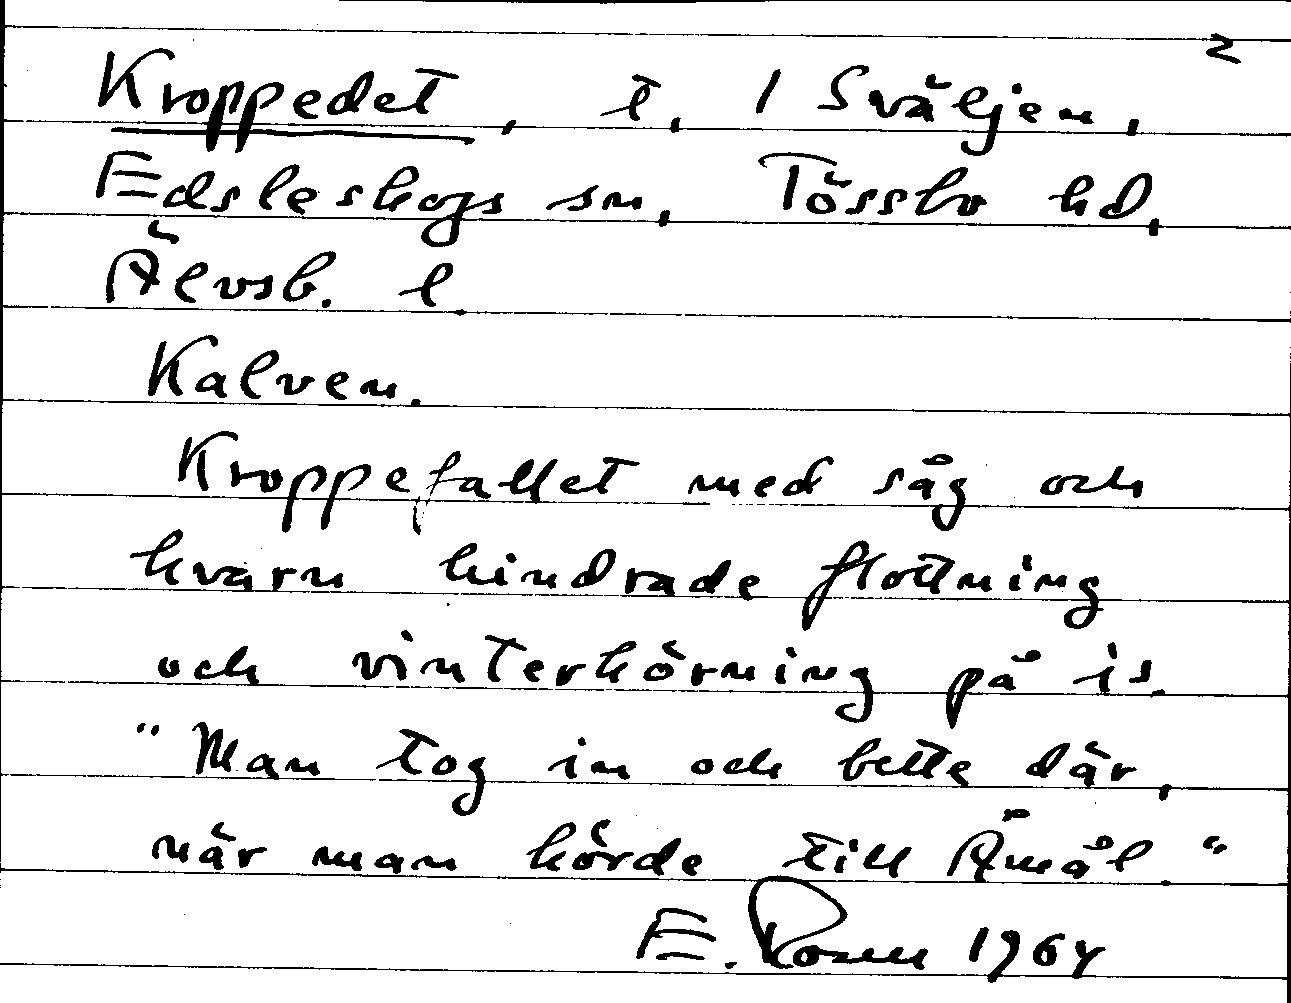 2
Kroppedet, t. 1 Sväljen,
Edsleskogs sn, Tössbo hd,
Älvsb. l.
Kalven.
Kroppefallet med såg och
kvarn hindrade flottning
och vinterkörning på is.
"Man tog in och bette där,
när man körde till Åmål."
E. Rosell 1964